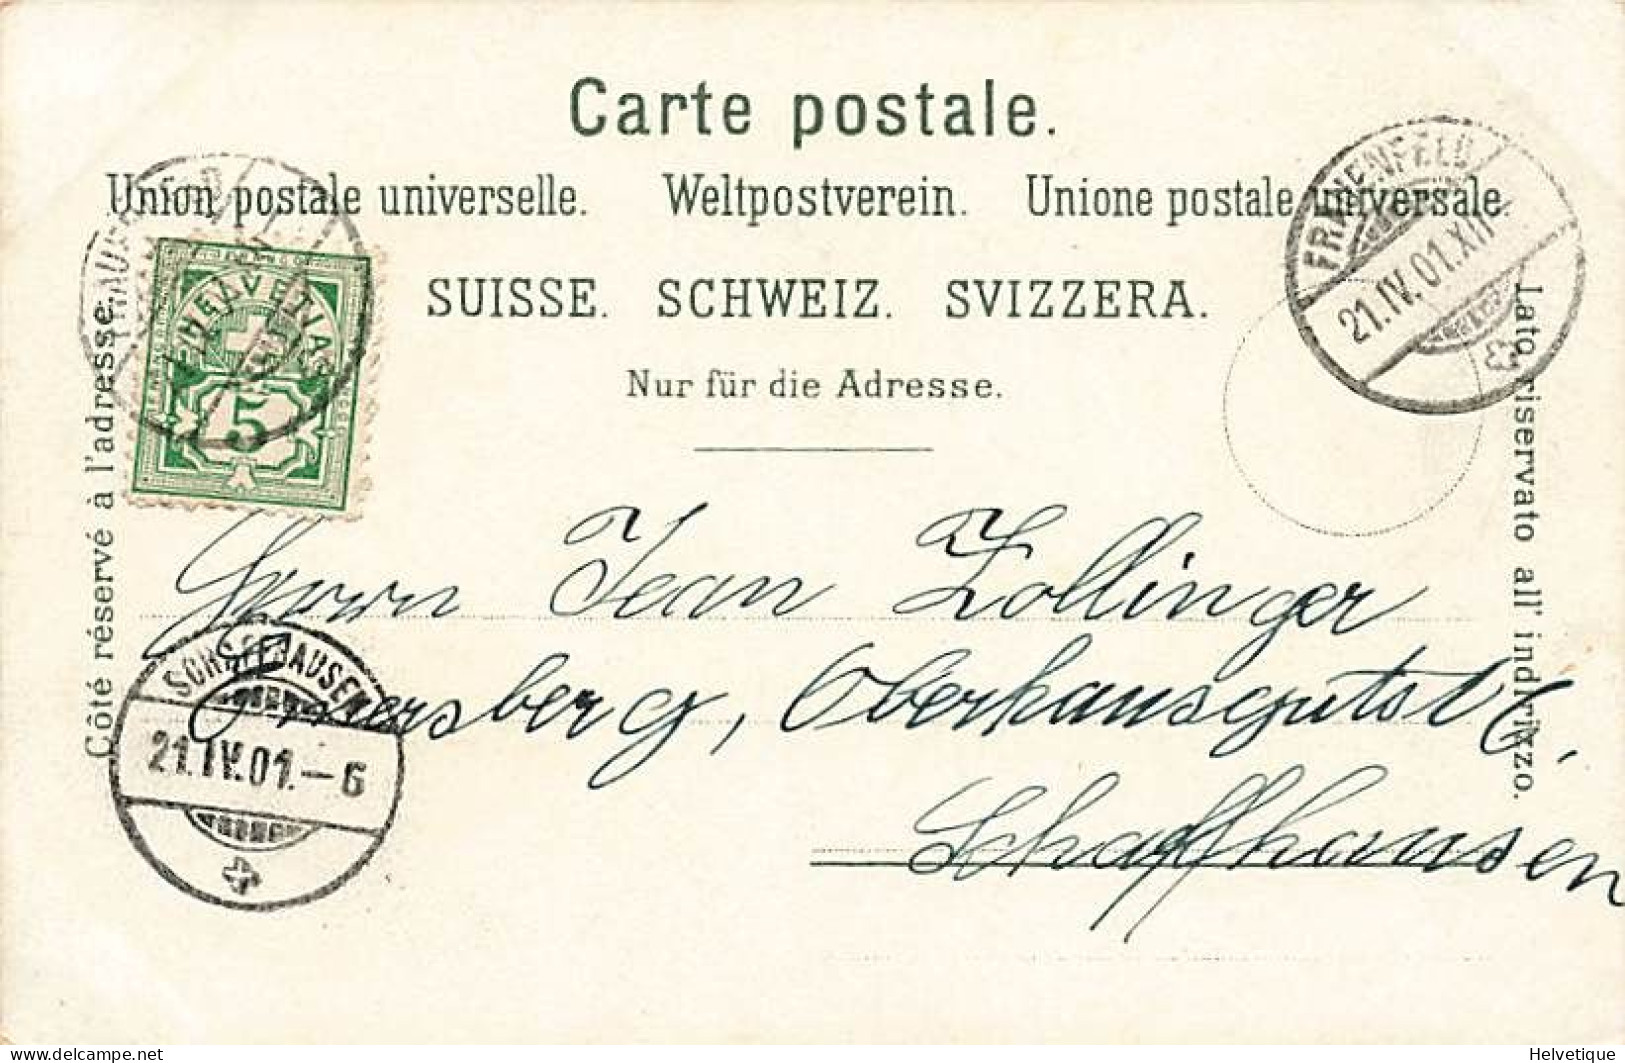 Carte postale.
Union postale universelle. Weltpostverein. Unione postale universale.
SUISSE. SCHWEIZ. SVIZZERA.
Nur für die Adresse.
Côté réservé à l'adresse.
Lato riservato all' indirizzo.
HELVETIA
5
FRAUENFELD
21.IV.01.XII
Herrn Jean Zollinger
Schaffhausen
SCHAFFHAUSEN
21.IV.01.–6
delcampe.net
Helvetique